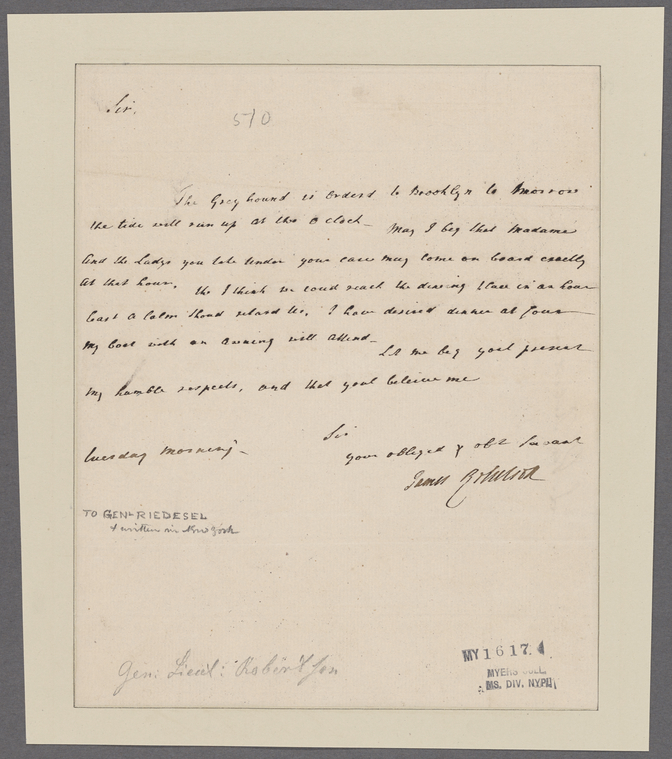 Sir,
510
The Greyhound is orderd to Brooklyn to morrow
the tide will run up at two o clock - May I beg that Madame
and the Ladys you take under your care may come on board exactly
at that hour, tho I think we coud reach the dining place in an hour
least a Calm shoud retard us, I have desired dinner at four
My boat with an awning will attend -
Let me beg youl present
My humble respects, and that youl beleive me
Sir
your obliged & obt Servant
Tuesday Morning -
James Robertson
TO GENL RIEDESEL
& written in New York
Gen: Lieut: Robertson
MY 16 17 4
MYERS COLL.
MS. DIV. NYPL